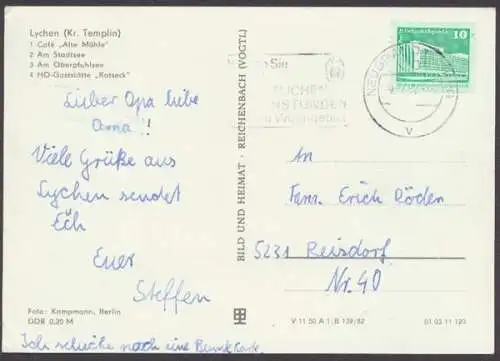 Lychen (Kr. Templin)
1 Café „Alte Mühle"
2 Am Stadtsee
3 Am Oberpfuhlsee
4 HO-Gaststätte „Kotseck"
Lieber Opa liebe
Oma !!
Viele Grüße aus
Lychen sendet
Euch
Euer
Steffen
Foto: Kampmann, Berlin
DDR 0,20 M
Ich schicke noch eine
BILD UND HEIMAT · REICHENBACH (VOGTL)
10
V
An
Fam. Erich Röden
5231 Reisdorf
Nr. 40
V 11 50 A 1 | B 139/82
01 03 11 120